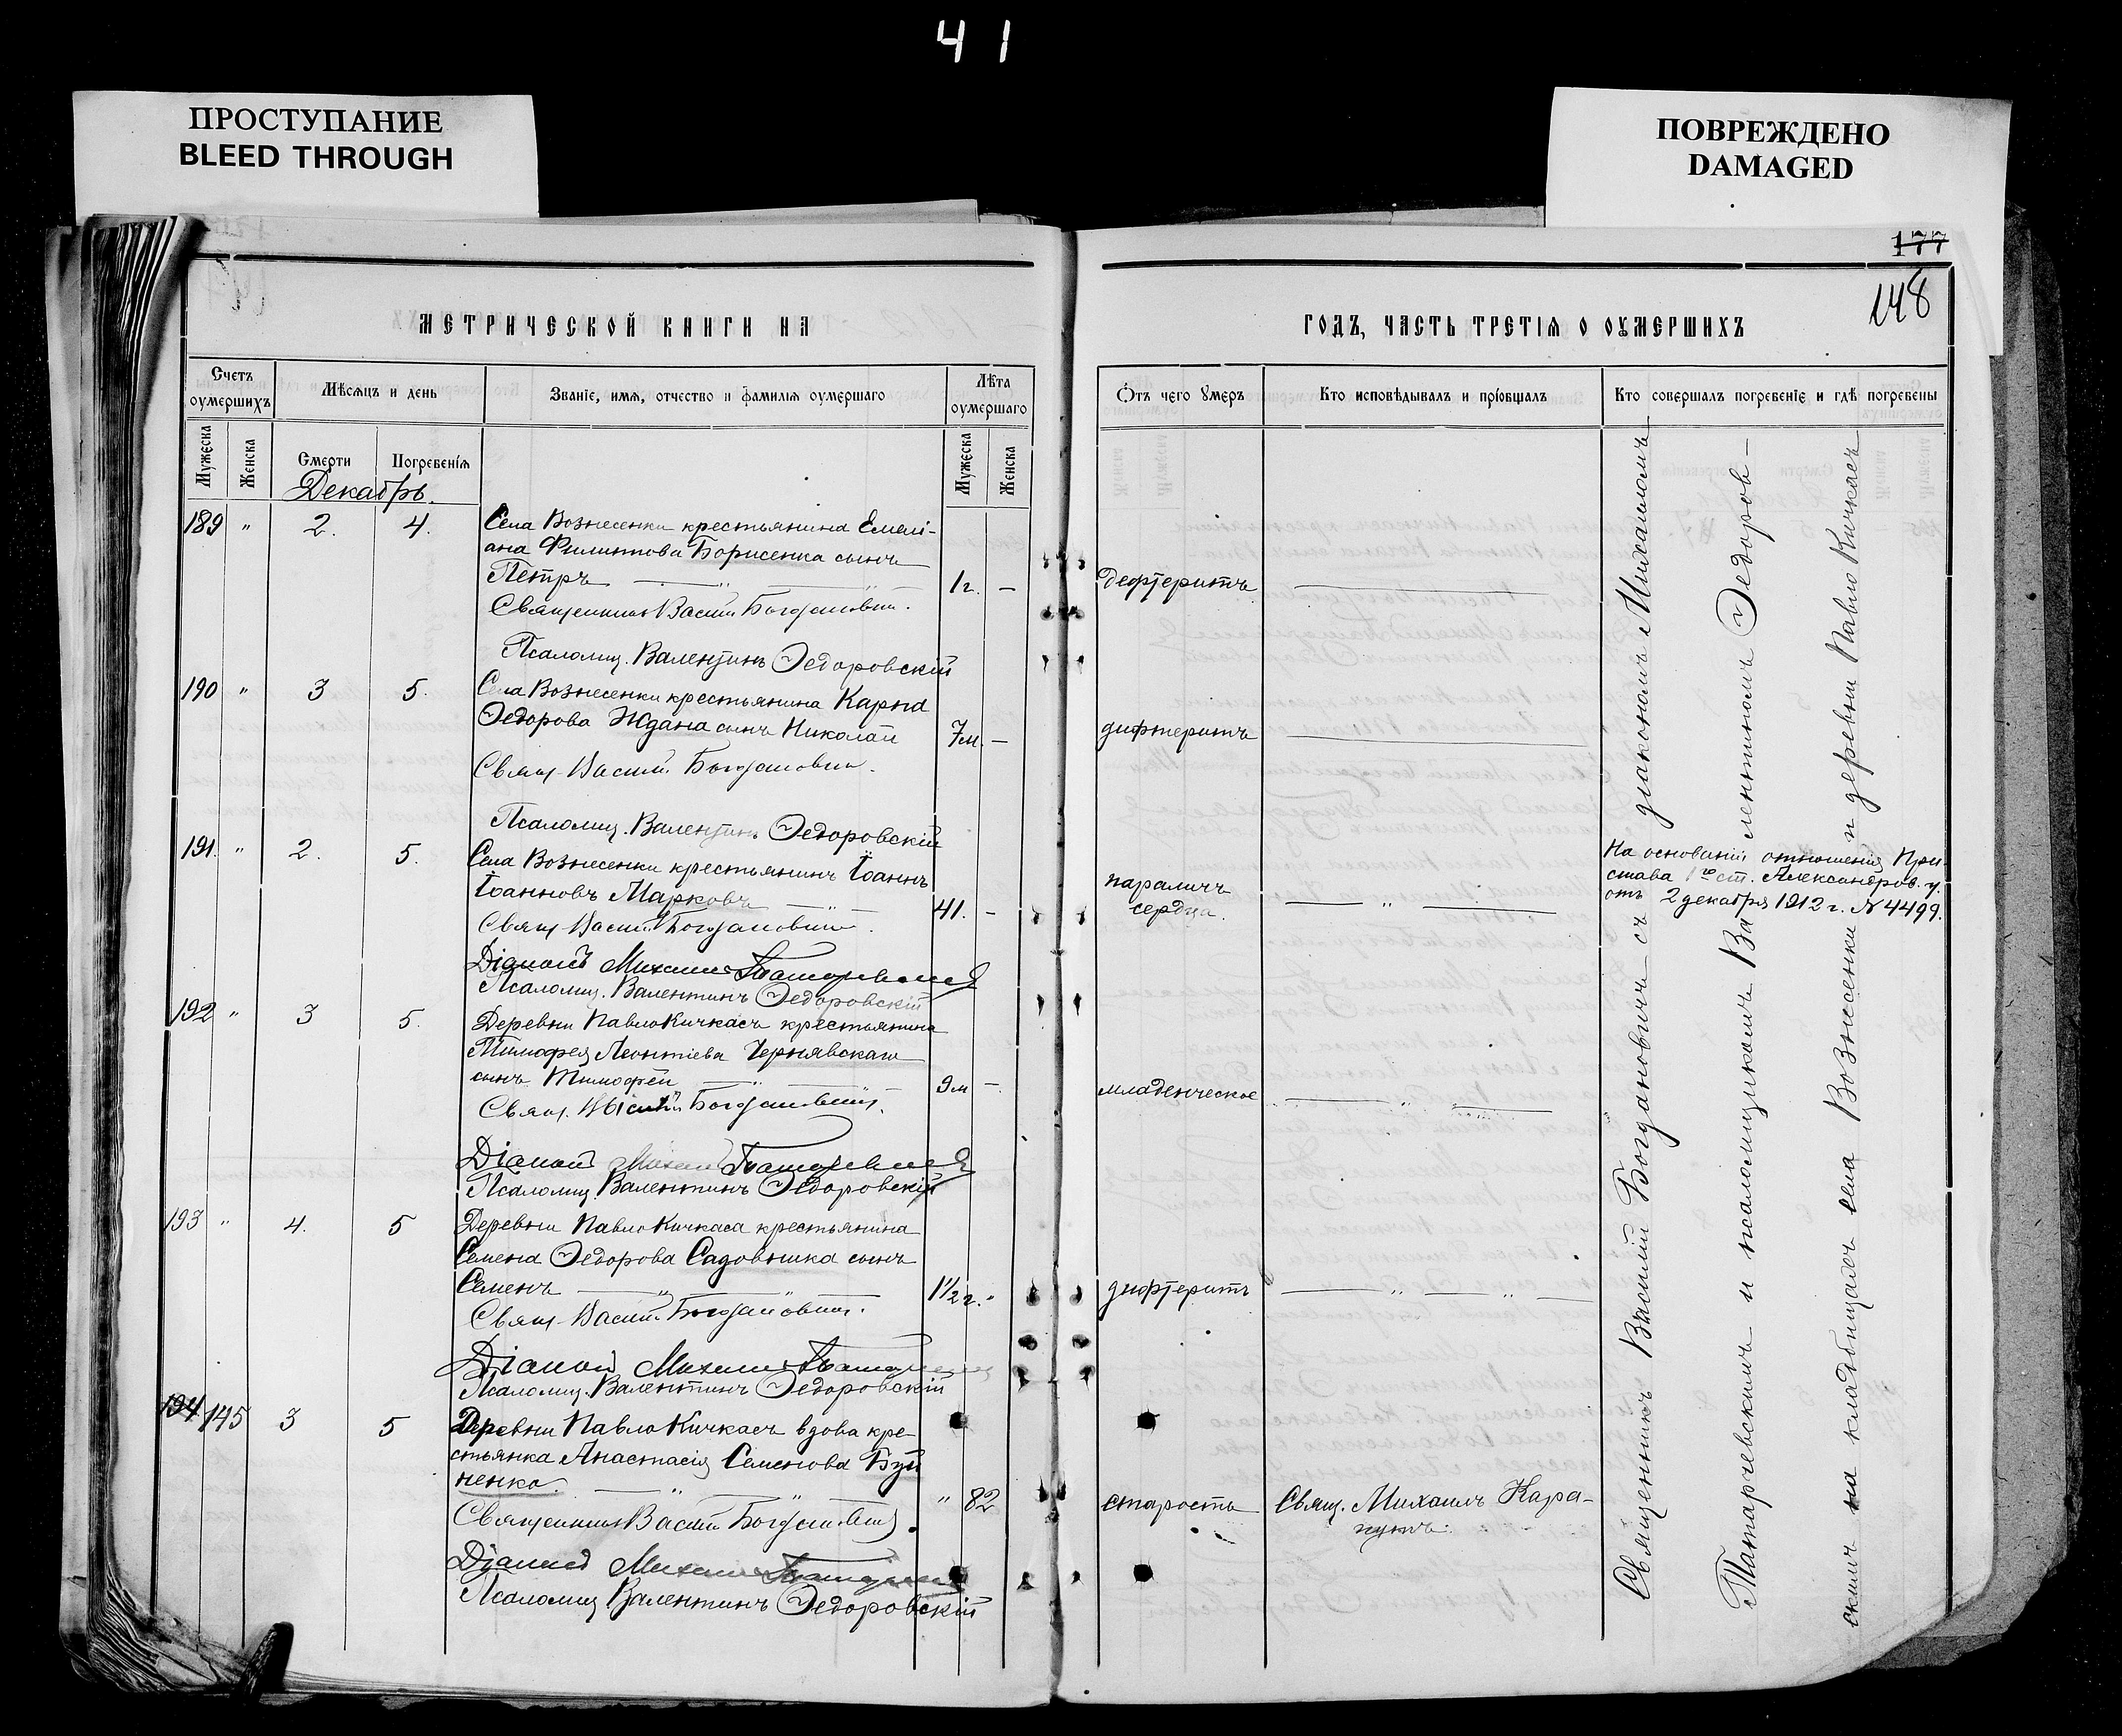 41
ПРОСТУПАНИЕ
BLEED THROUGH
ПОВРЕЖДЕНО
DAMAGED
177
148
МЕТРИЧЕСКОЙ КНИГИ НА
ГОДЪ, ЧАСТЬ ТРЕТІЯ О ОУМЕРШИХЪ
Счетъ оумершихъ
Мѣсяцъ и день
Званіе, имя, отчество и фамилія оумершаго
Лѣта оумершаго
Отъ чего оумеръ
Кто исповѣдывалъ и пріобщалъ
Кто совершалъ погребеніе и гдѣ погребены
Мужеска
Женска
Смерти
Погребенія
Мужеска
Женска
Декабрь.
189 " 2. 4. Села Вознесенки крестьянина Емелі-
ана Филиппова Борисенка сынъ
Петръ 1 г. — дефтеритъ
Священникъ Васил. Богдановичъ.
Псаломщ. Валентинъ Ѳедоровскій
190 " 3 5. Села Вознесенки крестьянина Карпа
Ѳедорова Ждана сынъ Николай 7 м. — дифтеритъ
Свящ. Васил. Богдановичъ.
Псаломщ. Валентинъ Ѳедоровскій
191. " 2. 5. Села Вознесенки крестьянинъ Іоаннъ
Іоанновъ Марковъ 41. — параличъ
сердца.
Свящ. Васил. Богдановичъ.
Діаконъ Михаилъ Татарчевскій
Псаломщ. Валентинъ Ѳедоровскій
192 " 3 5. Деревни ПавлоКичкасъ крестьянина
Тимофея Леонтіева Чернявскаго
сынъ Тимофей 9 м — младенческое
Свящ. Василій Богдановичъ.
Діаконъ Михаилъ Татарчевскій
Псаломщ. Валентинъ Ѳедоровскій
193 " 4. 5 Деревни ПавлоКичкаса крестьянина
Семена Ѳедорова Садовника сынъ
Семенъ 1½ г. " дифтеритъ
Свящ. Васил. Богдановичъ.
Діаконъ Михаилъ Татарчевскій
Псаломщ. Валентинъ Ѳедоровскій
194 145 3 5 Деревни ПавлоКичкасъ вдова кре-
стьянка Анастасія Семенова Буй
ненко. " 82 старость Свящ. Михаилъ Кара-
Священникъ Васил. Богдановичъ.
Діаконъ Михаилъ Татарчевскій
Псаломщ. Валентинъ Ѳедоровскій
На основаніи отношенія При-
става 1го ст. Александров. у.
отъ 2 декабря 1912 г. № 4499.
Священникъ Василій Богдановичъ съ діакономъ Михаиломъ
Татарчевскимъ и псаломщикомъ Валентиномъ Ѳедоров-
скимъ на кладбищахъ села Вознесенки и деревни ПавлоКичкасъ